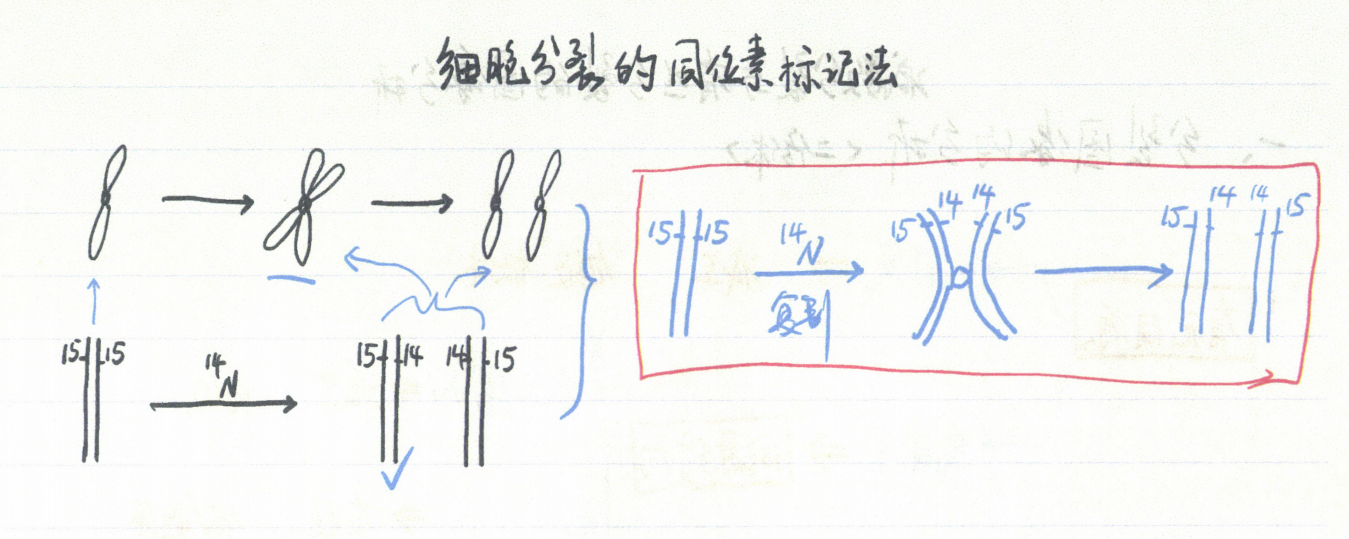 细胞分裂的同位素标记法
15 15 ¹⁴N 15 14 14 15
15 15 ¹⁴N 复制 15 14 14 15 15 14 14 15